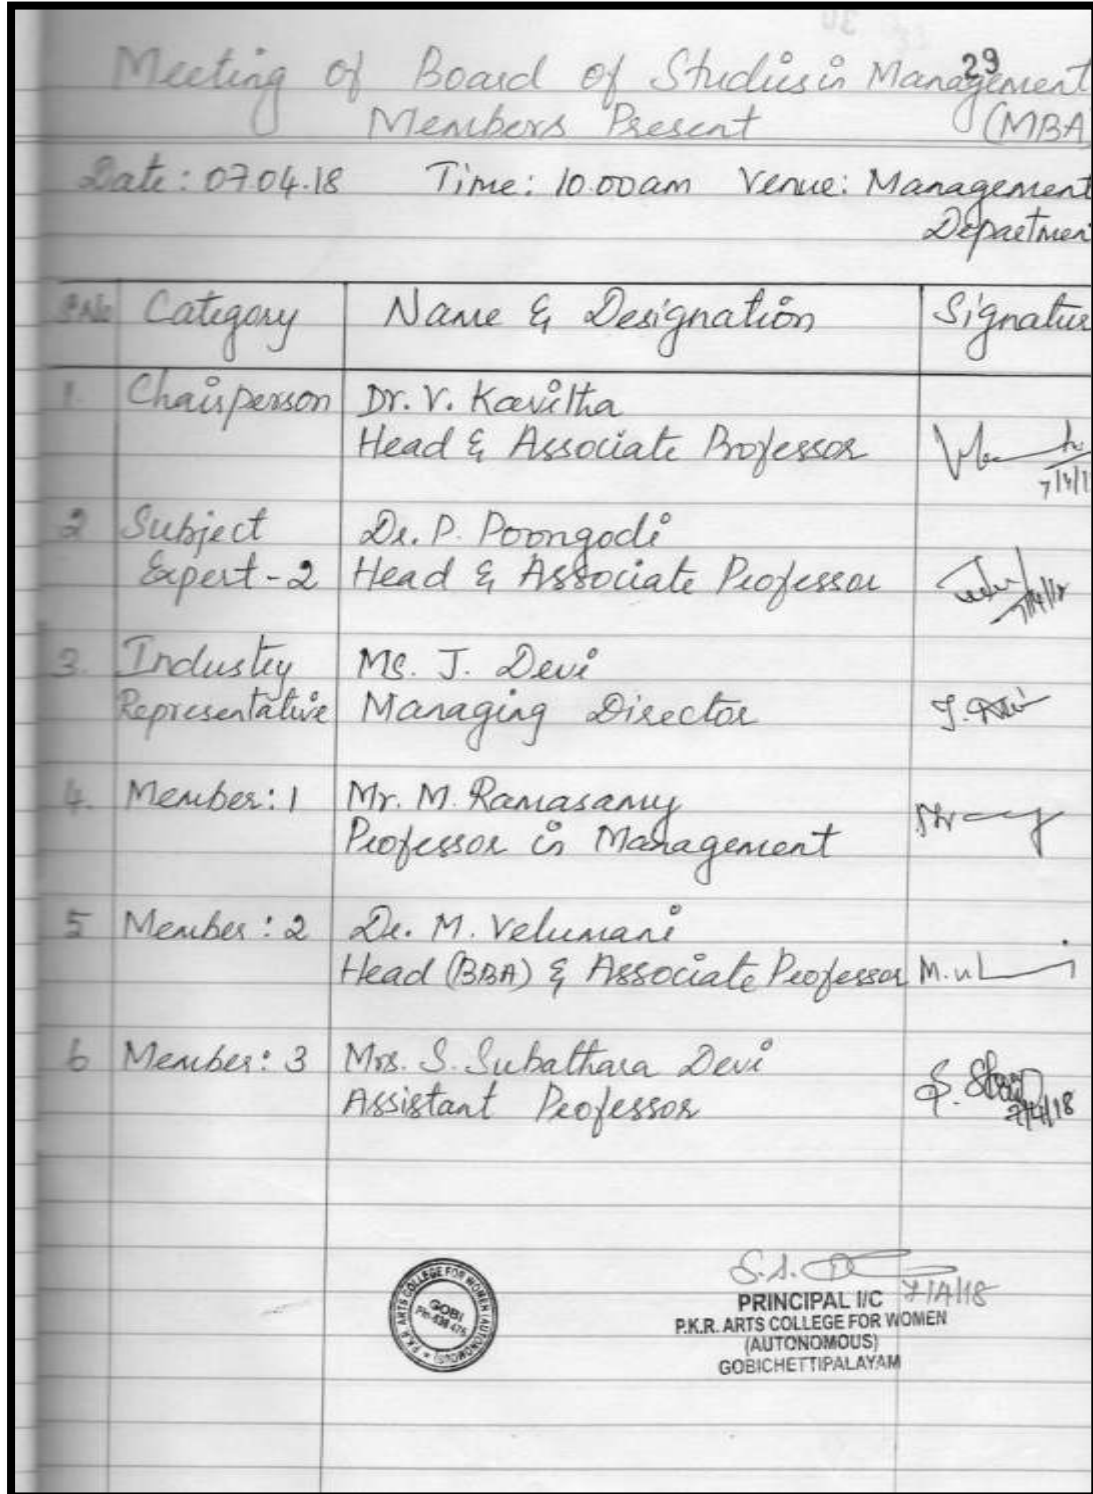 29
Meeting of Board of Studies in Management
Members Present (MBA)
Date: 07.04.18 Time: 10.00am Venue: Management
Departmen
S.No Category Name & Designation Signatur
1. Chairperson Dr. V. Kavitha
Head & Associate Professor
7/4/1
2 Subject Dr. P. Poongodi
Expert-2 Head & Associate Professor
7/4/18
3. Industry Ms. J. Devi
Representative Managing Director J. Devi
4. Member: 1 Mr. M. Ramasamy
Professor in Management
5 Member: 2 Dr. M. Velumani
Head (BBA) & Associate Professor
6 Member: 3 Mrs. S. Subathara Devi
Assistant Professor
7/4/18
P.K.R. ARTS COLLEGE FOR WOMEN (AUTONOMOUS)
GOBI
PIN-638 476
7/4/18
PRINCIPAL I/C
P.K.R. ARTS COLLEGE FOR WOMEN
(AUTONOMOUS)
GOBICHETTIPALAYAM